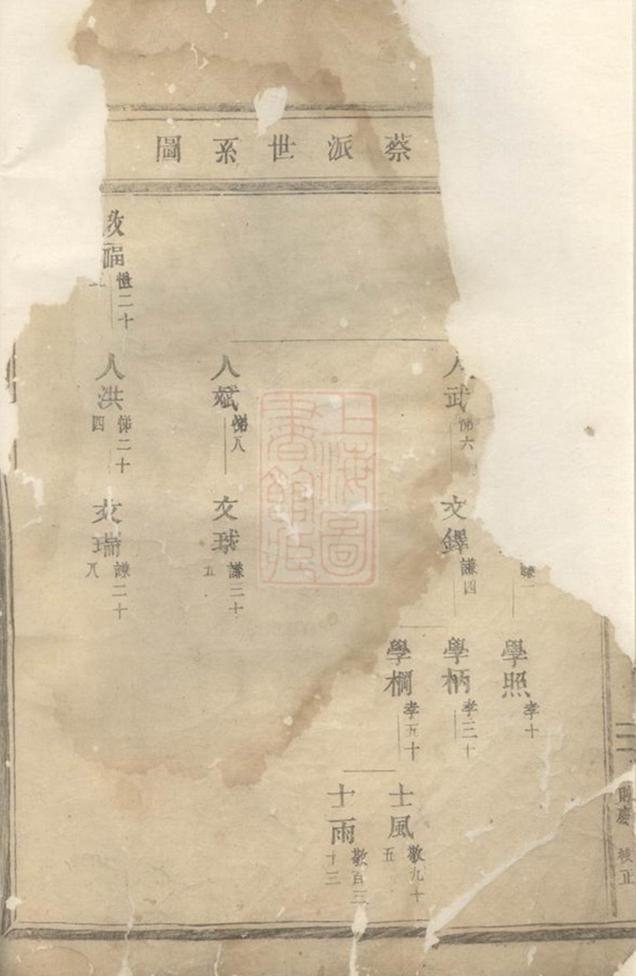 蔡派世系圖
學照 孝十
武 悌六
文鐸 謙四
學柄 孝三十
學棡 孝五十
士風 敬九十五
士雨 敬百三十三
人斌 悌八
文球 謙三十五
福 二十
人洪 悌二十四
文瑞 謙二十八
上海圖書館藏
校正